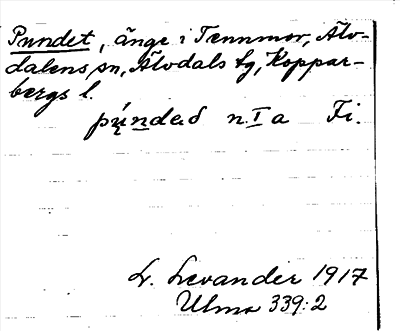 Pundet, änge i Tennmor, Älv-
dalens sn, Älvdals tg, Koppar-
bergs l.
n. I a Fi.
L. Levander 1917
Ulma 339:2